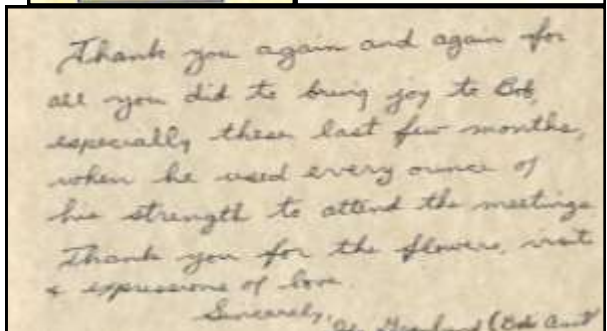 Thank you again and again for
all you did to bring joy to Bob,
especially these last few months,
when he used every ounce of
his strength to attend the meetings
Thank you for the flowers, visit
& expressions of love.
Sincerely,
(Bob